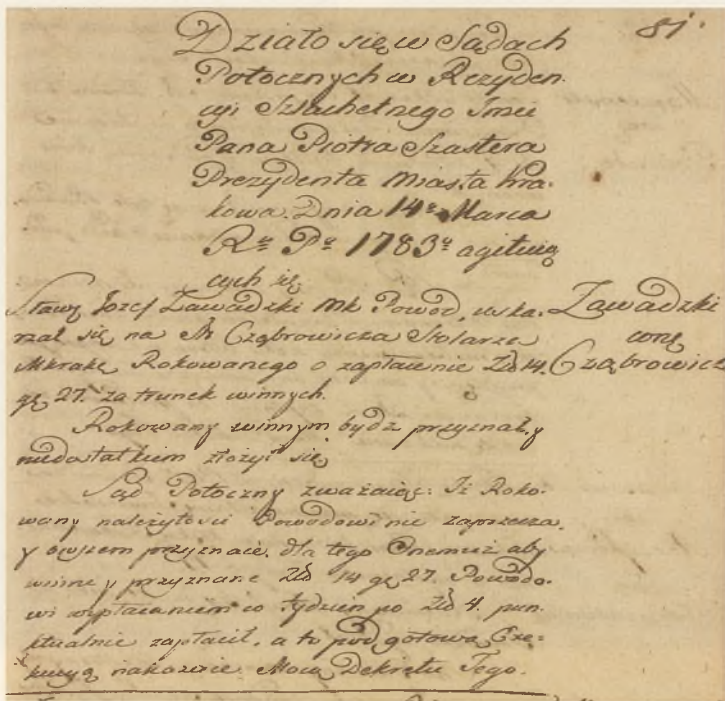 81.
Działo się w Sądach
Potocznych w Rezyden
cyi Szlachetnego Jmci
Pana Piotra Szastera
Prezydenta Miasta Kra.
kowa. Dnia 14º Marca
Rº Pº 1783º agituią
cych się
Sławę Jozef Zawadzki Mk Powod, uska.
rzał się na Cząbrowicza Stolarza
Rokowanego o zapłacenie Złł 14.
gę 27. za trunek winnych.
Zawadzki
Cząbrowicz
Rokowany winnym bydz przyznał, y
niedostatkiem złożył się
Sąd Potoczny zważaiąc: Iż Roko-
wany należytości Powodowi nie zaprzecza,
y owszem przyznaie, dla tego Onemuż aby
winne y przyznane Złł 14 gę 27. Powodo.
wi wypłacaniem co tydzien po Złł 4. pun.
ktualnie zapłacił, a to pod gotową Exe-
kucyą nakazuie Mocą Dekretu Tego.